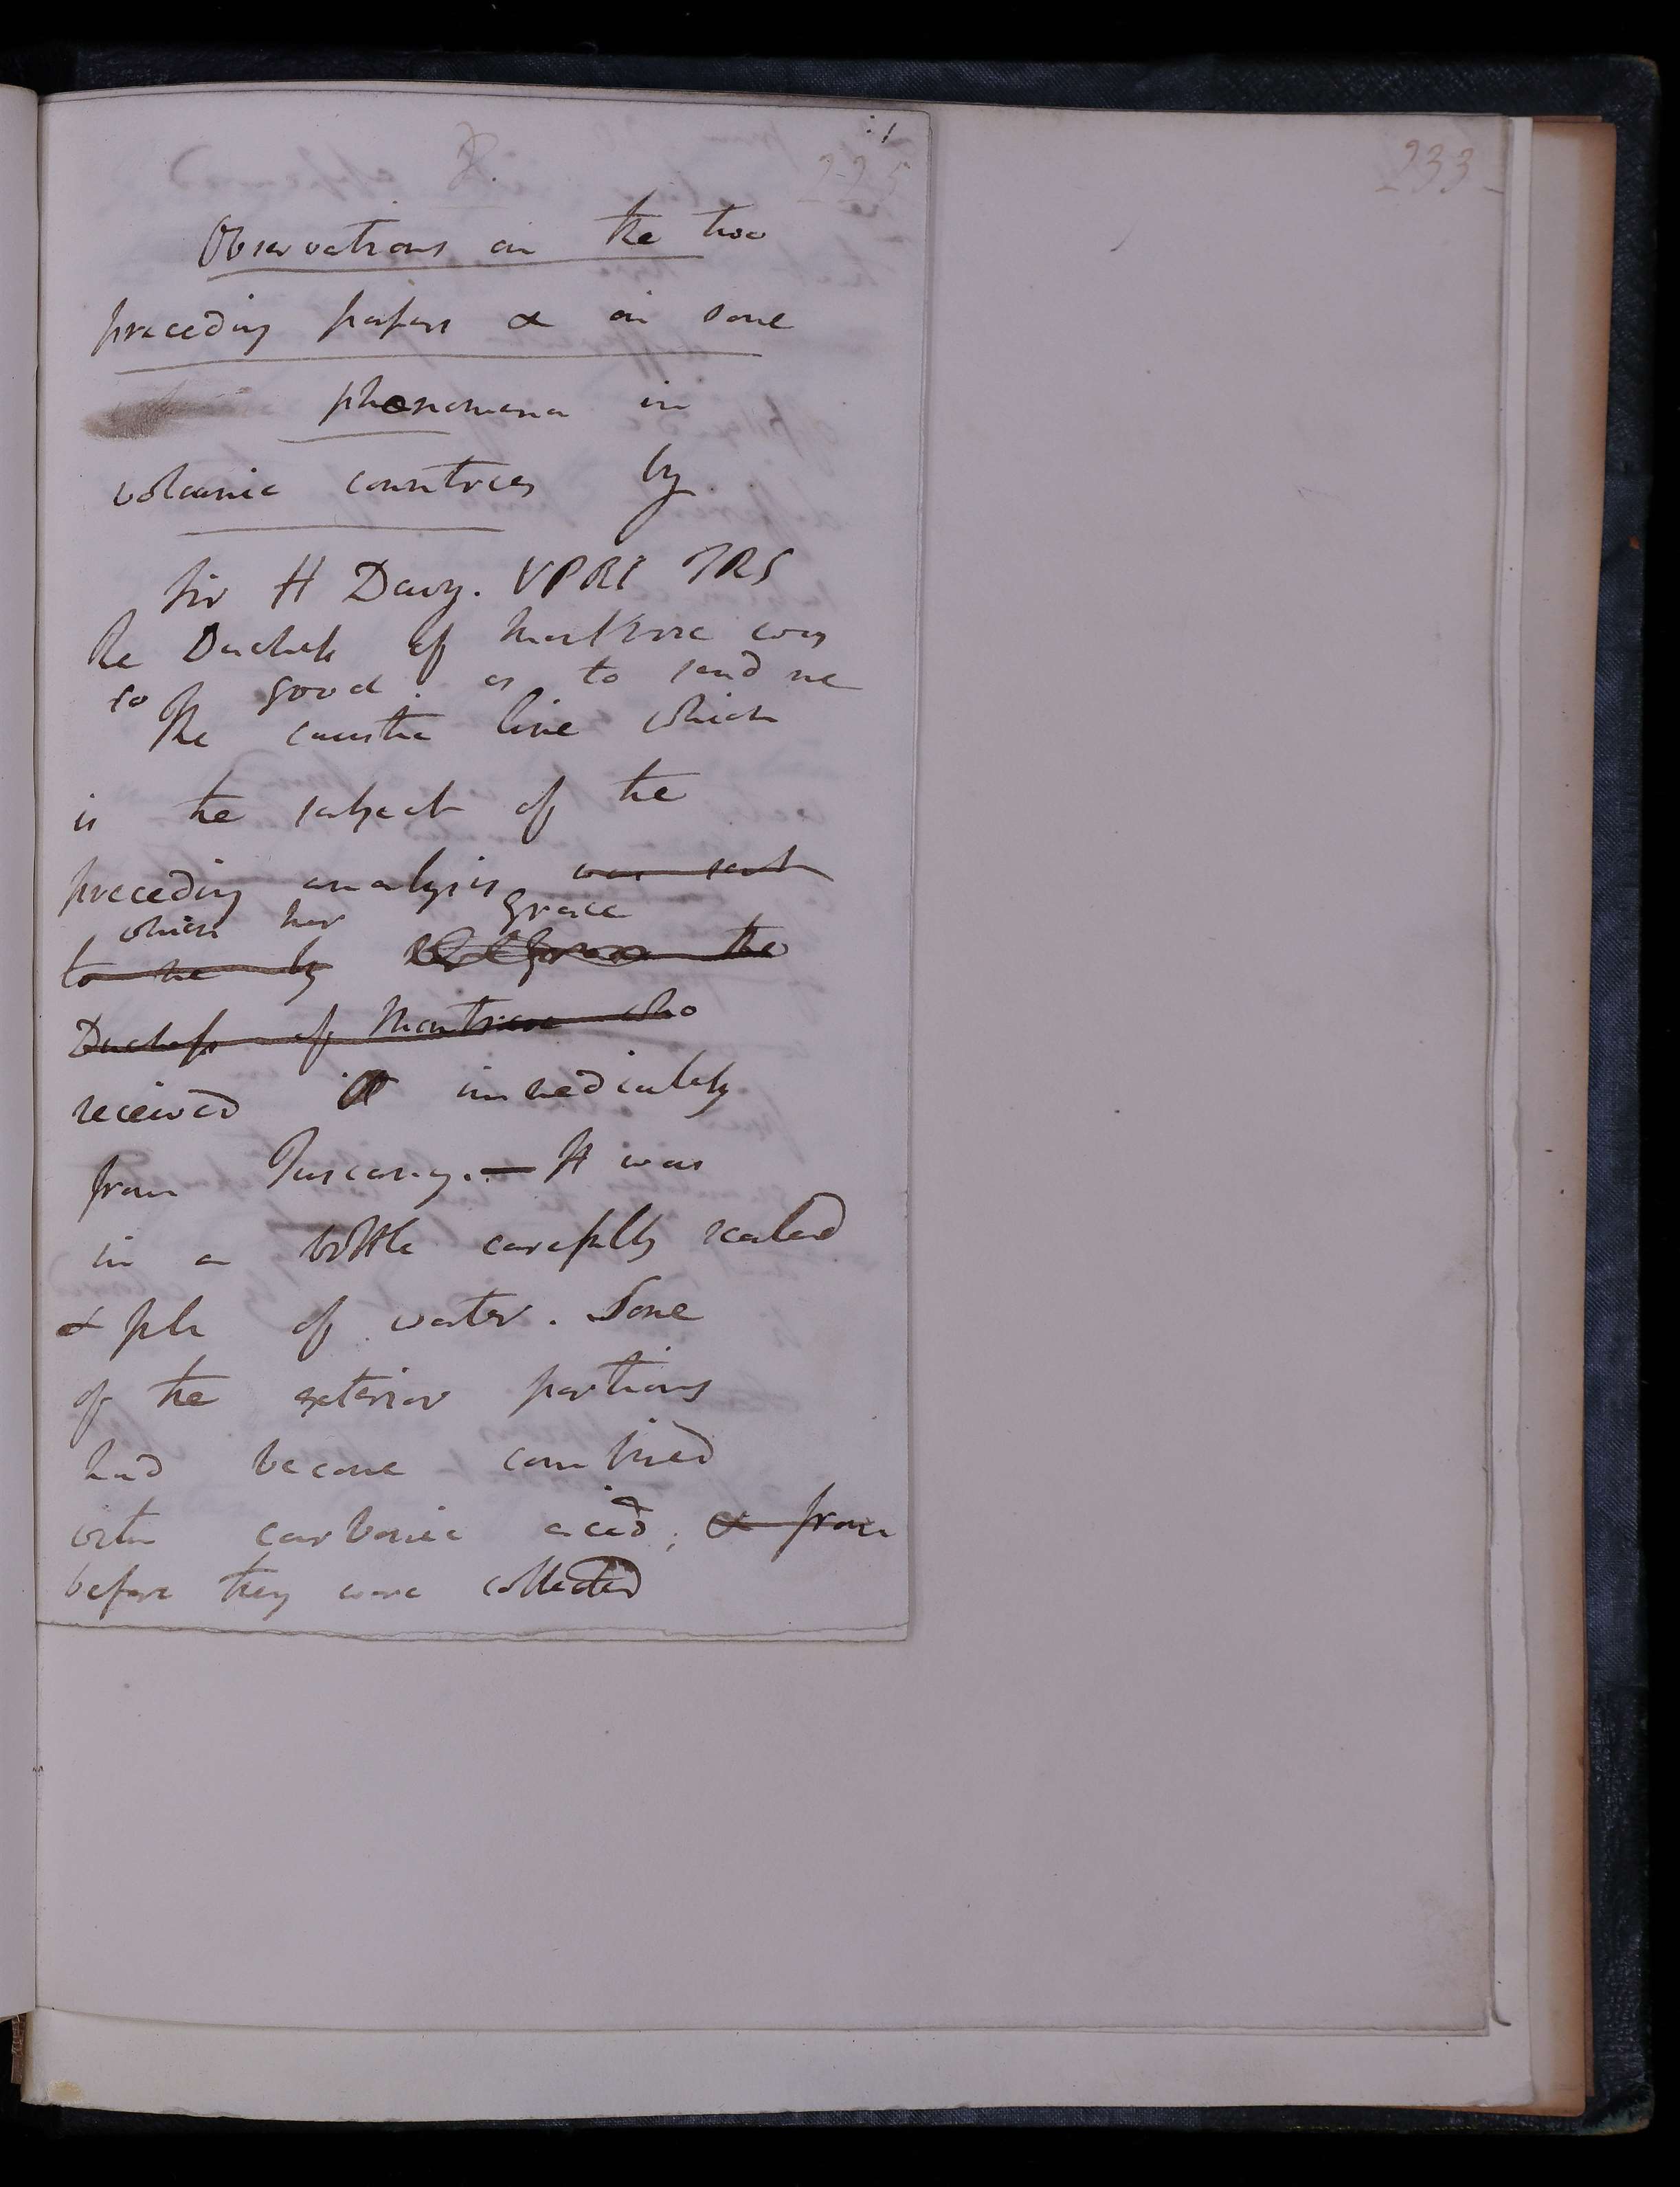 1
225
233
Observations on the two
preceding papers & on some
phenomena in
volcanic countries by
Sir H Davy. VPRI FRS
The Duchess of Montrose was
so good as to send me
the caustic lime which
is the subject of the
preceding analysis was sent
which her Grace
to me by the
Duchess of Montrose who
received it immediately
from Tuscany. — It was
in a bottle carefully sealed
& full of water. Some
of the exterior portions
had become combined
with carbonic acid; & from
before they were collected